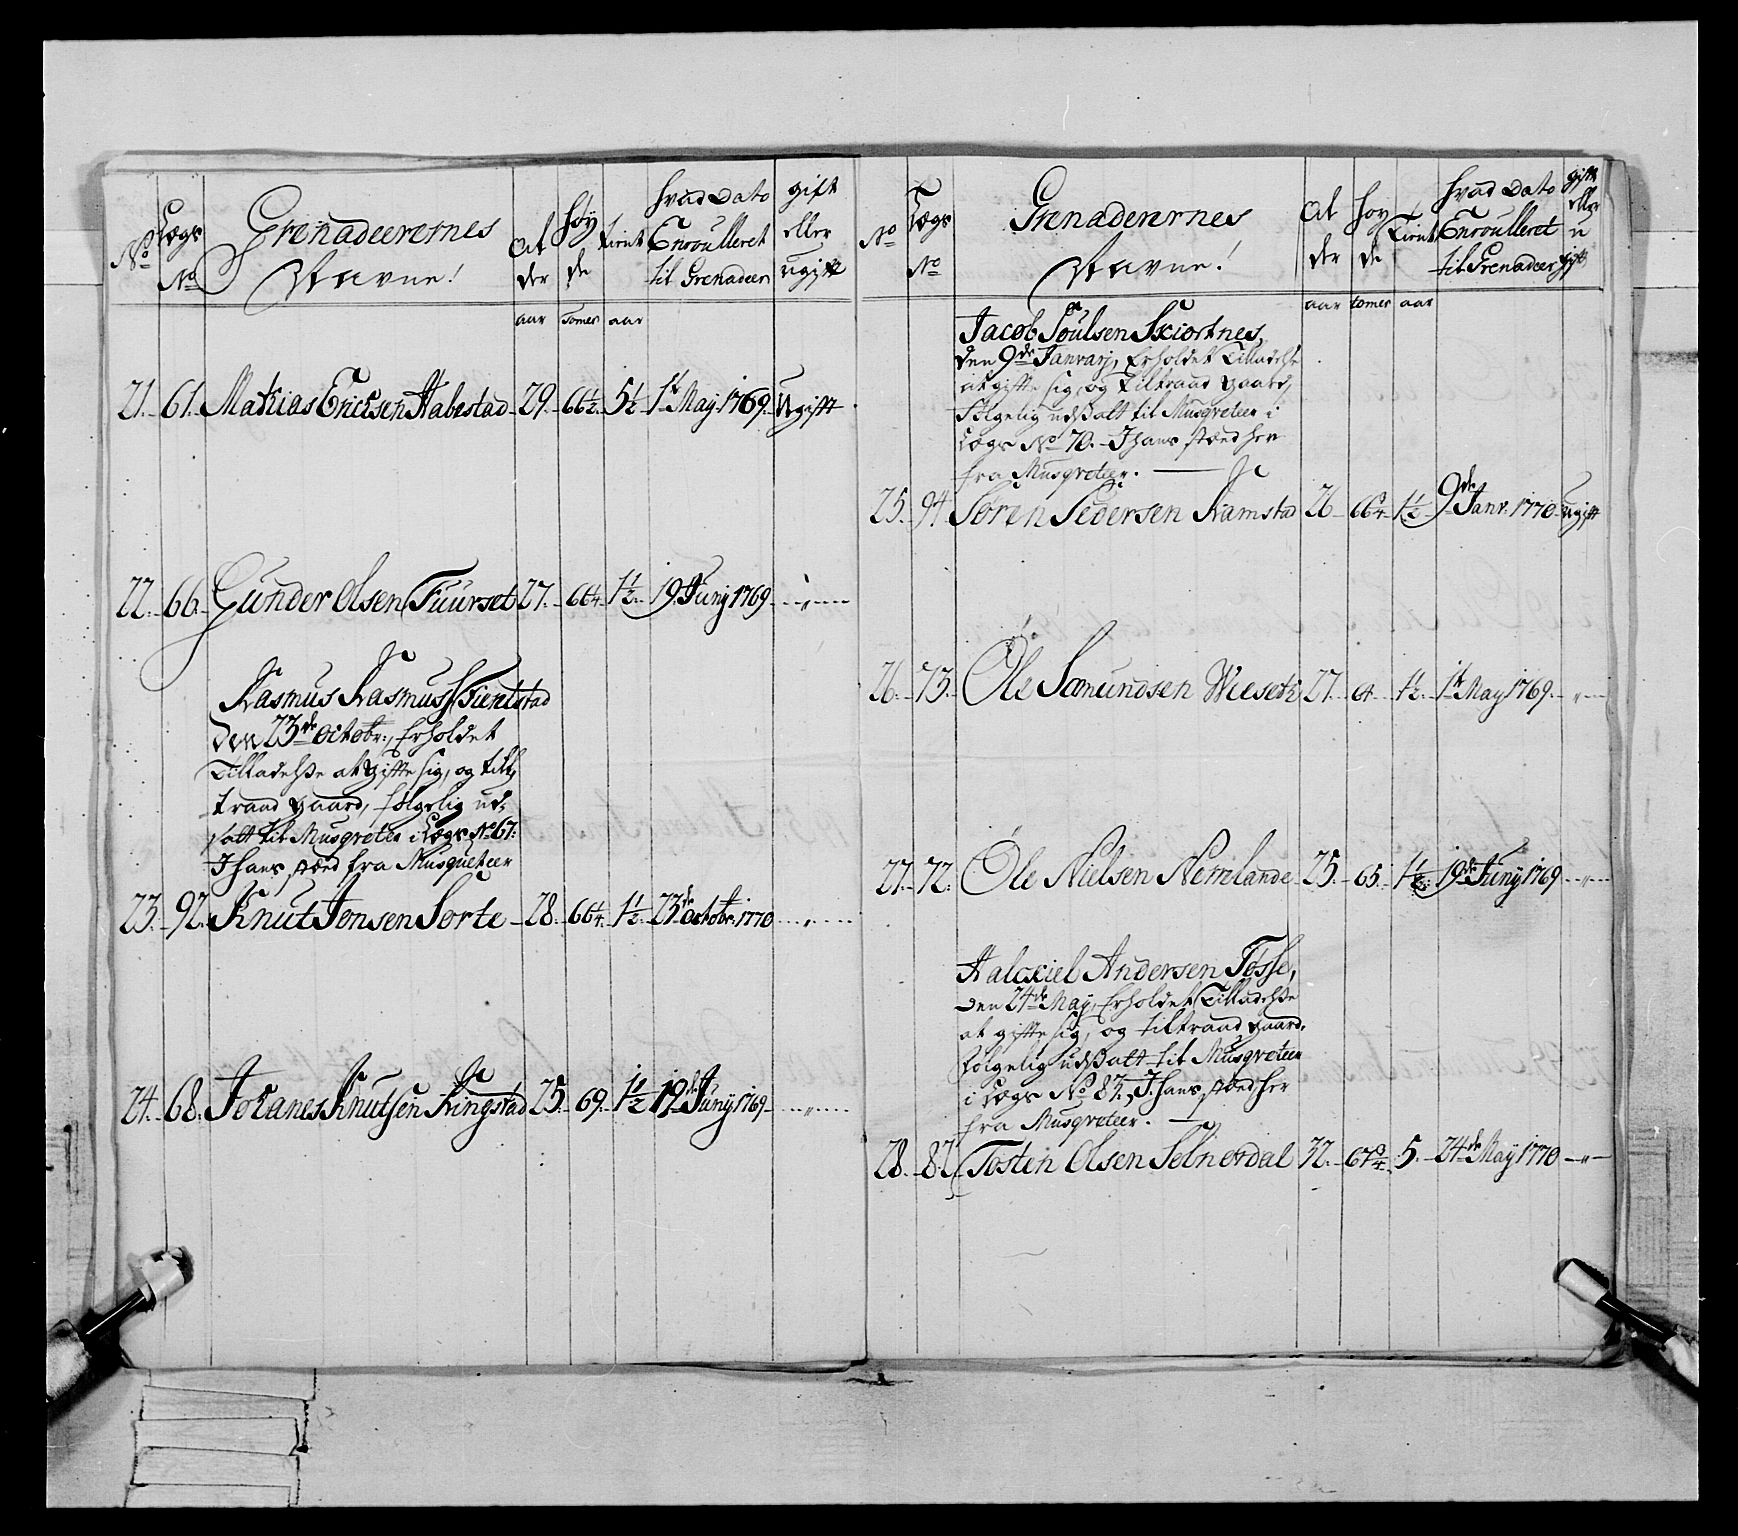 No Lægs No Grenadeerernes Navne! Al der Høy de tient hvad Dato Enroulleret til Grenadeer gift eller ugift
aar Tomer aar
21. 61. Matias Ericksen Habestad 29. 66½ 5½ 1t May 1769. Ugift
22. 66. Gunder Olsen Tuurset 27. 66¼ 1½ 19. Juny 1769 " 
Rasmus Rasmuss: Tientstad
den 23de octobr:, Erholdet
Tilladelse at gifte sig, og till
traad gaard, følgelig ud„
satt til Musqveteer i Lægs No 67:
I hans stæd fra Musqueteer
23. 92. Knut Jonsen Sorte 28. 66¼. 1½ 23de octobr: 1770 "
24. 68. Johanes Knutsen Ringstad 25. 69. 1½ 19de Juny 1769 "
No Lægs No Grenaderernes Navne! Al der Høy de Tient hvad Dato Enroulleret til Grenadeer gift eller u gift
aar tomer aar
Jacob Poulsen Skiortnes,
den 9de Janvarj, Erholdet Tilladelse
at gifte sig, og Tiltraad gaard,
følgelig udsatt til Musqveteer i
Lægs No 70. I hans stæd her
fra Musqveteer.
25. 94. Søren Pedersen Ramstad 26 66¾. 1½ 9de Janr: 1770 Ugift
26. 73. Ole Somundsen Wieseth 27. 64. 1½. 1t May 1769. "
27. 72. Ole Nielsen Nerrelande 25. 65. 1½. 19de Juny 1769 "
Halckiel Andersen Tosse,
den 24de May, Erholdet Tilladelse
at gifte sig, og tiltraad gaard,
følgelig udsatt til Musqveteer
i Lægs No 87. I hans stæd her
fra Musqveteer.
28. 87. Tosten Olsen Selnerdal 32. 67¾. 5. 24de May 1770 "